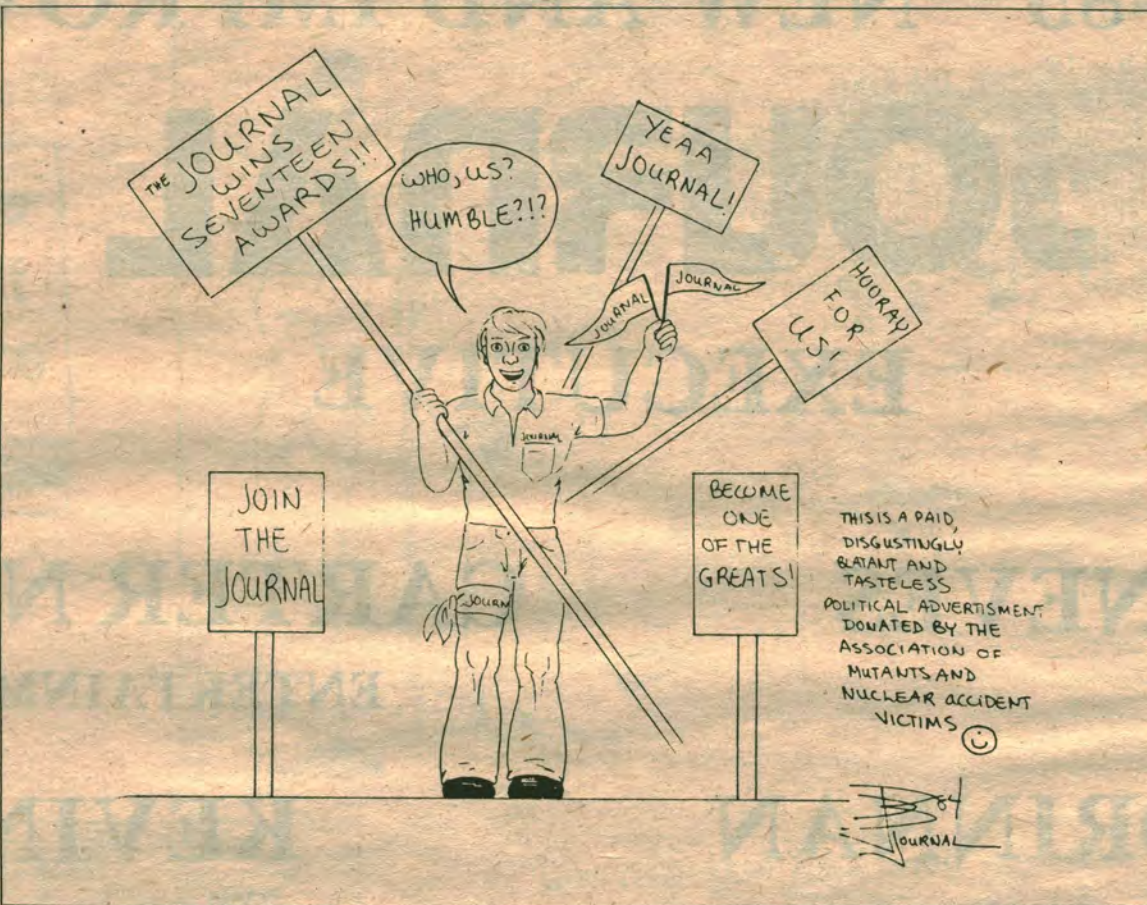 THE JOURNAL
WINS
SEVENTEEN
AWARDS!!
WHO, US?
HUMBLE?!?
YEAA
JOURNAL!
JOURNAL
JOURNAL
HOORAY
FOR
US!
JOURNAL
JOURN
JOIN
THE
JOURNAL
BECOME
ONE
OF THE
GREATS!
THIS IS A PAID,
DISGUSTINGLY
BLATANT AND
TASTELESS
POLITICAL ADVERTISMENT
DONATED BY THE
ASSOCIATION OF
MUTANTS AND
NUCLEAR ACCIDENT
VICTIMS
84
JOURNAL